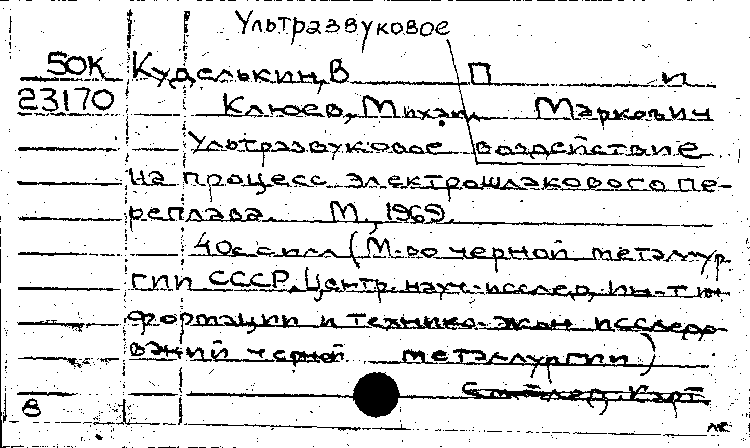 Ультразвуковое
50К Куделькин, В П и
23170 Клюев, Михаил Маркович
Ультразвуковое воздействие
на процесс электрошлакового пе-
реплава. М., 1969.
40с с илл (М-во черной металлур
гии СССР. Центр. науч-исслед, ин-т ин
формации и технико-экон исследо-
ваний черной металлургии)
След. карт
8